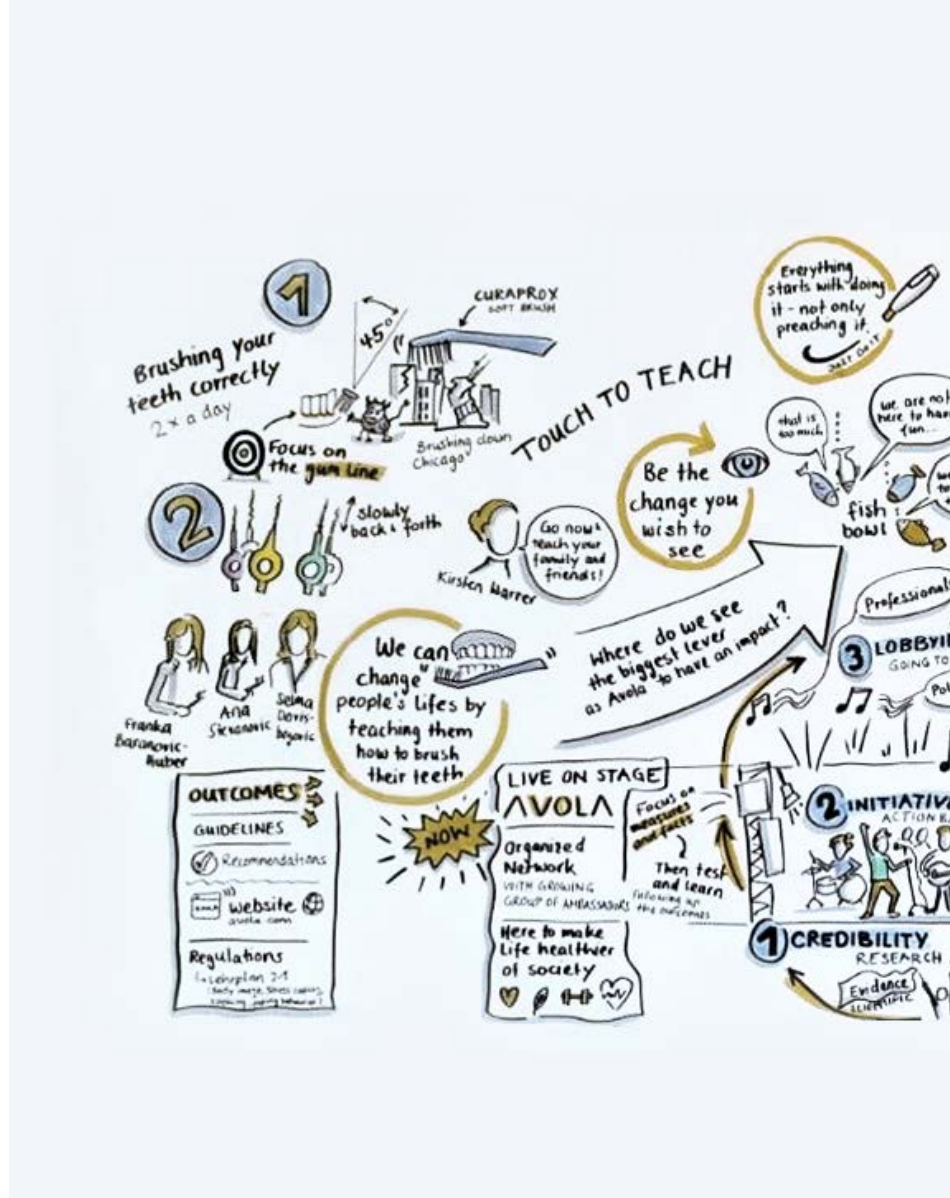 1
Brushing your
teeth correctly
2 x a day
45°
CURAPROX
SOFT BRUSH
Focus on
the gum line
Brushing down
Chicago
TOUCH TO TEACH
Everything
starts with doing
it - not only
preaching it.
JUST DO IT
2
slowly
back & forth
Kirsten Warrer
Go now &
teach your
family and
friends!
Be the
change you
wish to
see
that is
too much
we are not
here to
fun...
fish
bowl
Franka
Baranovic-
Huber
Ana
Stevanovic
Selma
We can
change
people's lifes by
teaching them
how to brush
their teeth
Where do we see
the biggest lever
as Avola to have an impact?
Professional
3 LOBBYI
GOING TO
OUTCOMES
GUIDELINES
Recommendations
website
avola.com
Regulations
Lehrplan 21
NOW
LIVE ON STAGE
AVOLA
Organized
Network
WITH GROWING
GROUP OF AMBASSADORS
Here to make
life healthier
of society
Focus on
measures
and facts
Then test
and learn
following up
the outcomes
2 INITIATIV
ACTION
1 CREDIBILITY
RESEARCH
Evidence
SCIENTIFIC